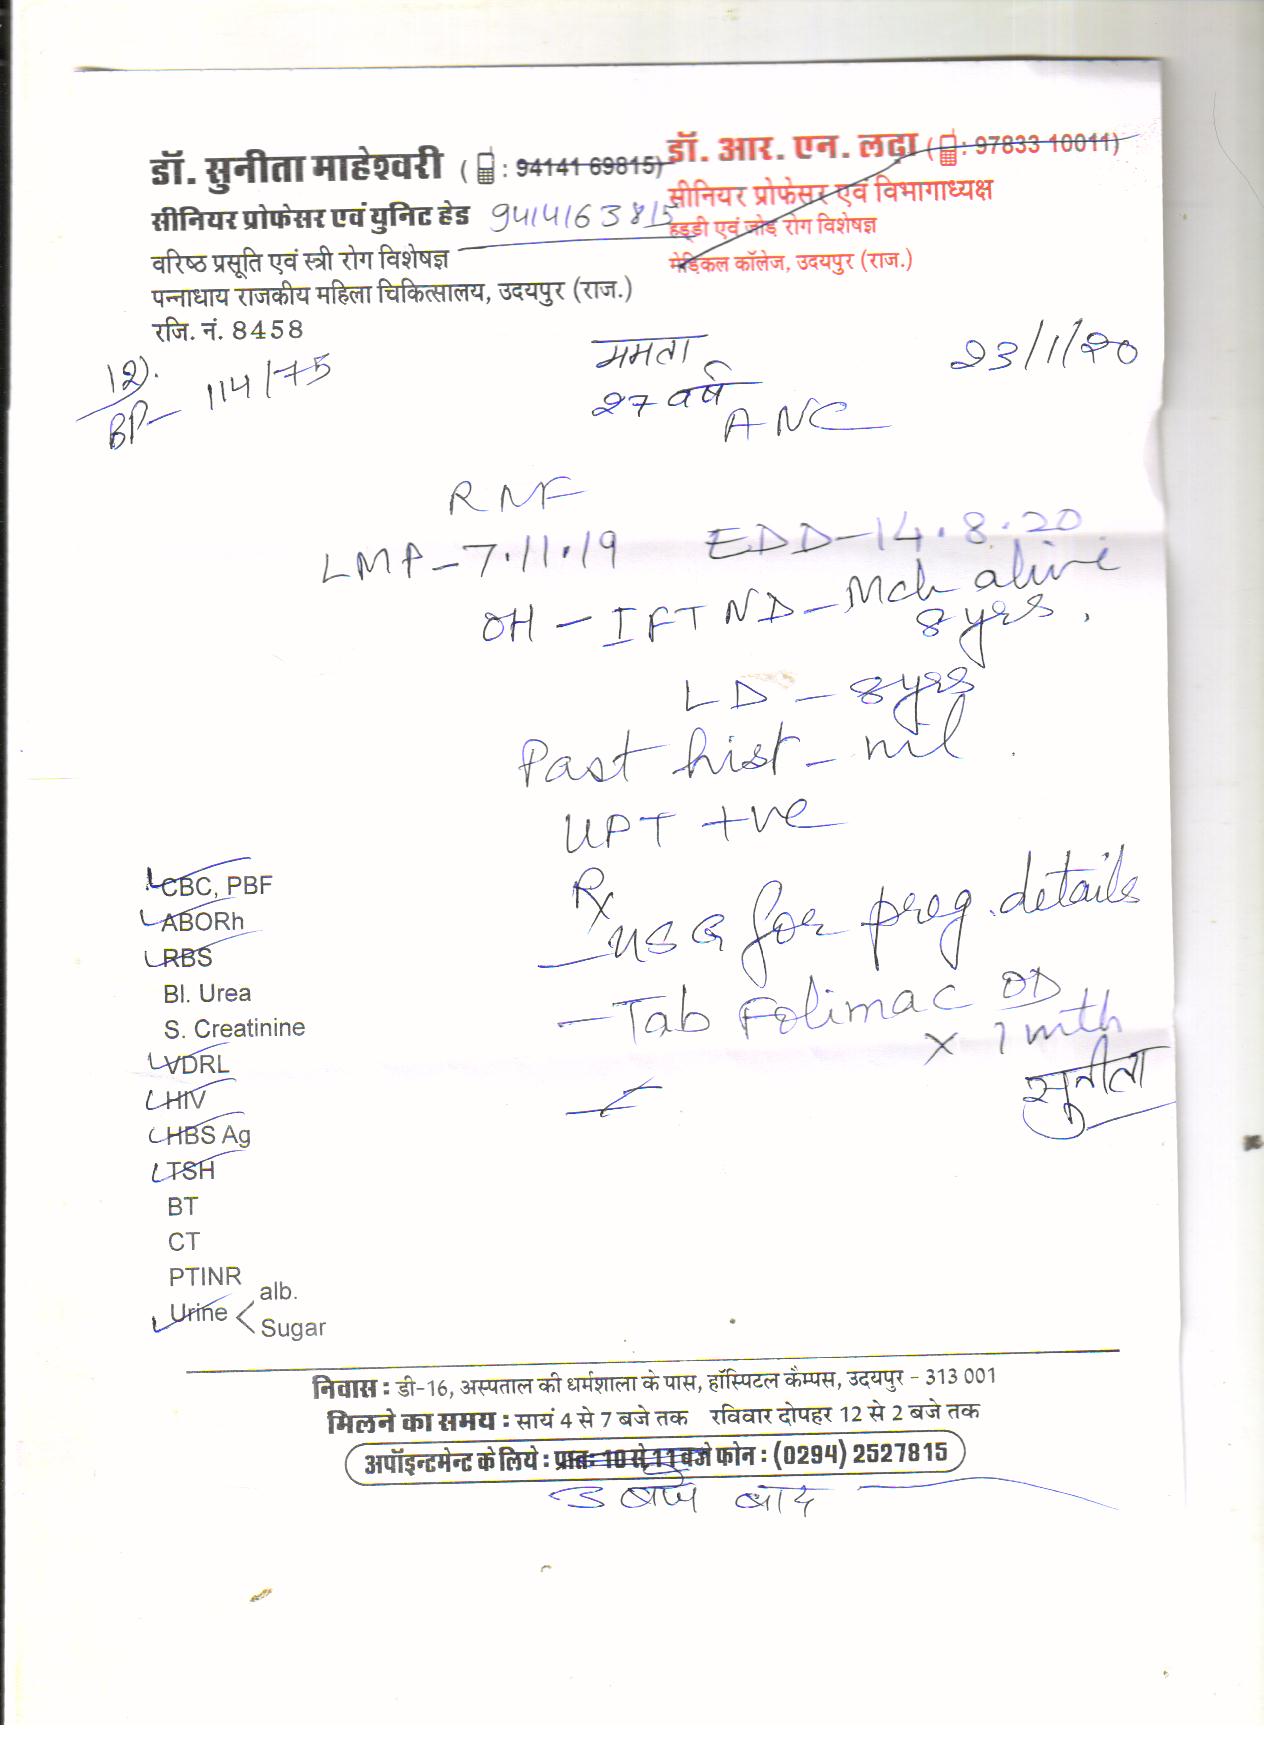 डॉ. सुनीता माहेश्वरी (: 94141 69815)
सीनियर प्रोफेसर एवं युनिट हेड 9414163815
वरिष्ठ प्रसूति एवं स्त्री रोग विशेषज्ञ
पन्नाधाय राजकीय महिला चिकित्सालय, उदयपुर (राज.)
रजि. नं. 8458
डॉ. आर. एन. लढ़ा (: 97833 10011)
सीनियर प्रोफेसर एवं विभागाध्यक्ष
हड्डी एवं जोड़ रोग विशेषज्ञ
मेडिकल कॉलेज, उदयपुर (राज.)
12).
BP- 114/75
ममता
27 वर्ष
23/1/20
ANC
RNF
LMP - 7.11.19 EDD - 14.8.20
OH - IFTND - Mch alive
8 yrs.
LD - 8 yrs
Past hist - nil
UPT +ve
Rx
- USG for preg. details
- Tab Folimac OD
x 1 mth
सुनीता
CBC, PBF
ABORh
RBS
Bl. Urea
S. Creatinine
VDRL
HIV
HBS Ag
TSH
BT
CT
PTINR
Urine < alb.
Sugar
निवास : डी-16, अस्पताल की धर्मशाला के पास, हॉस्पिटल कैम्पस, उदयपुर - 313 001
मिलने का समय : सायं 4 से 7 बजे तक रविवार दोपहर 12 से 2 बजे तक
अपॉइन्टमेन्ट के लिये : प्रातः 10 से 11 बजे फोन : (0294) 2527815
3 बजे बाद